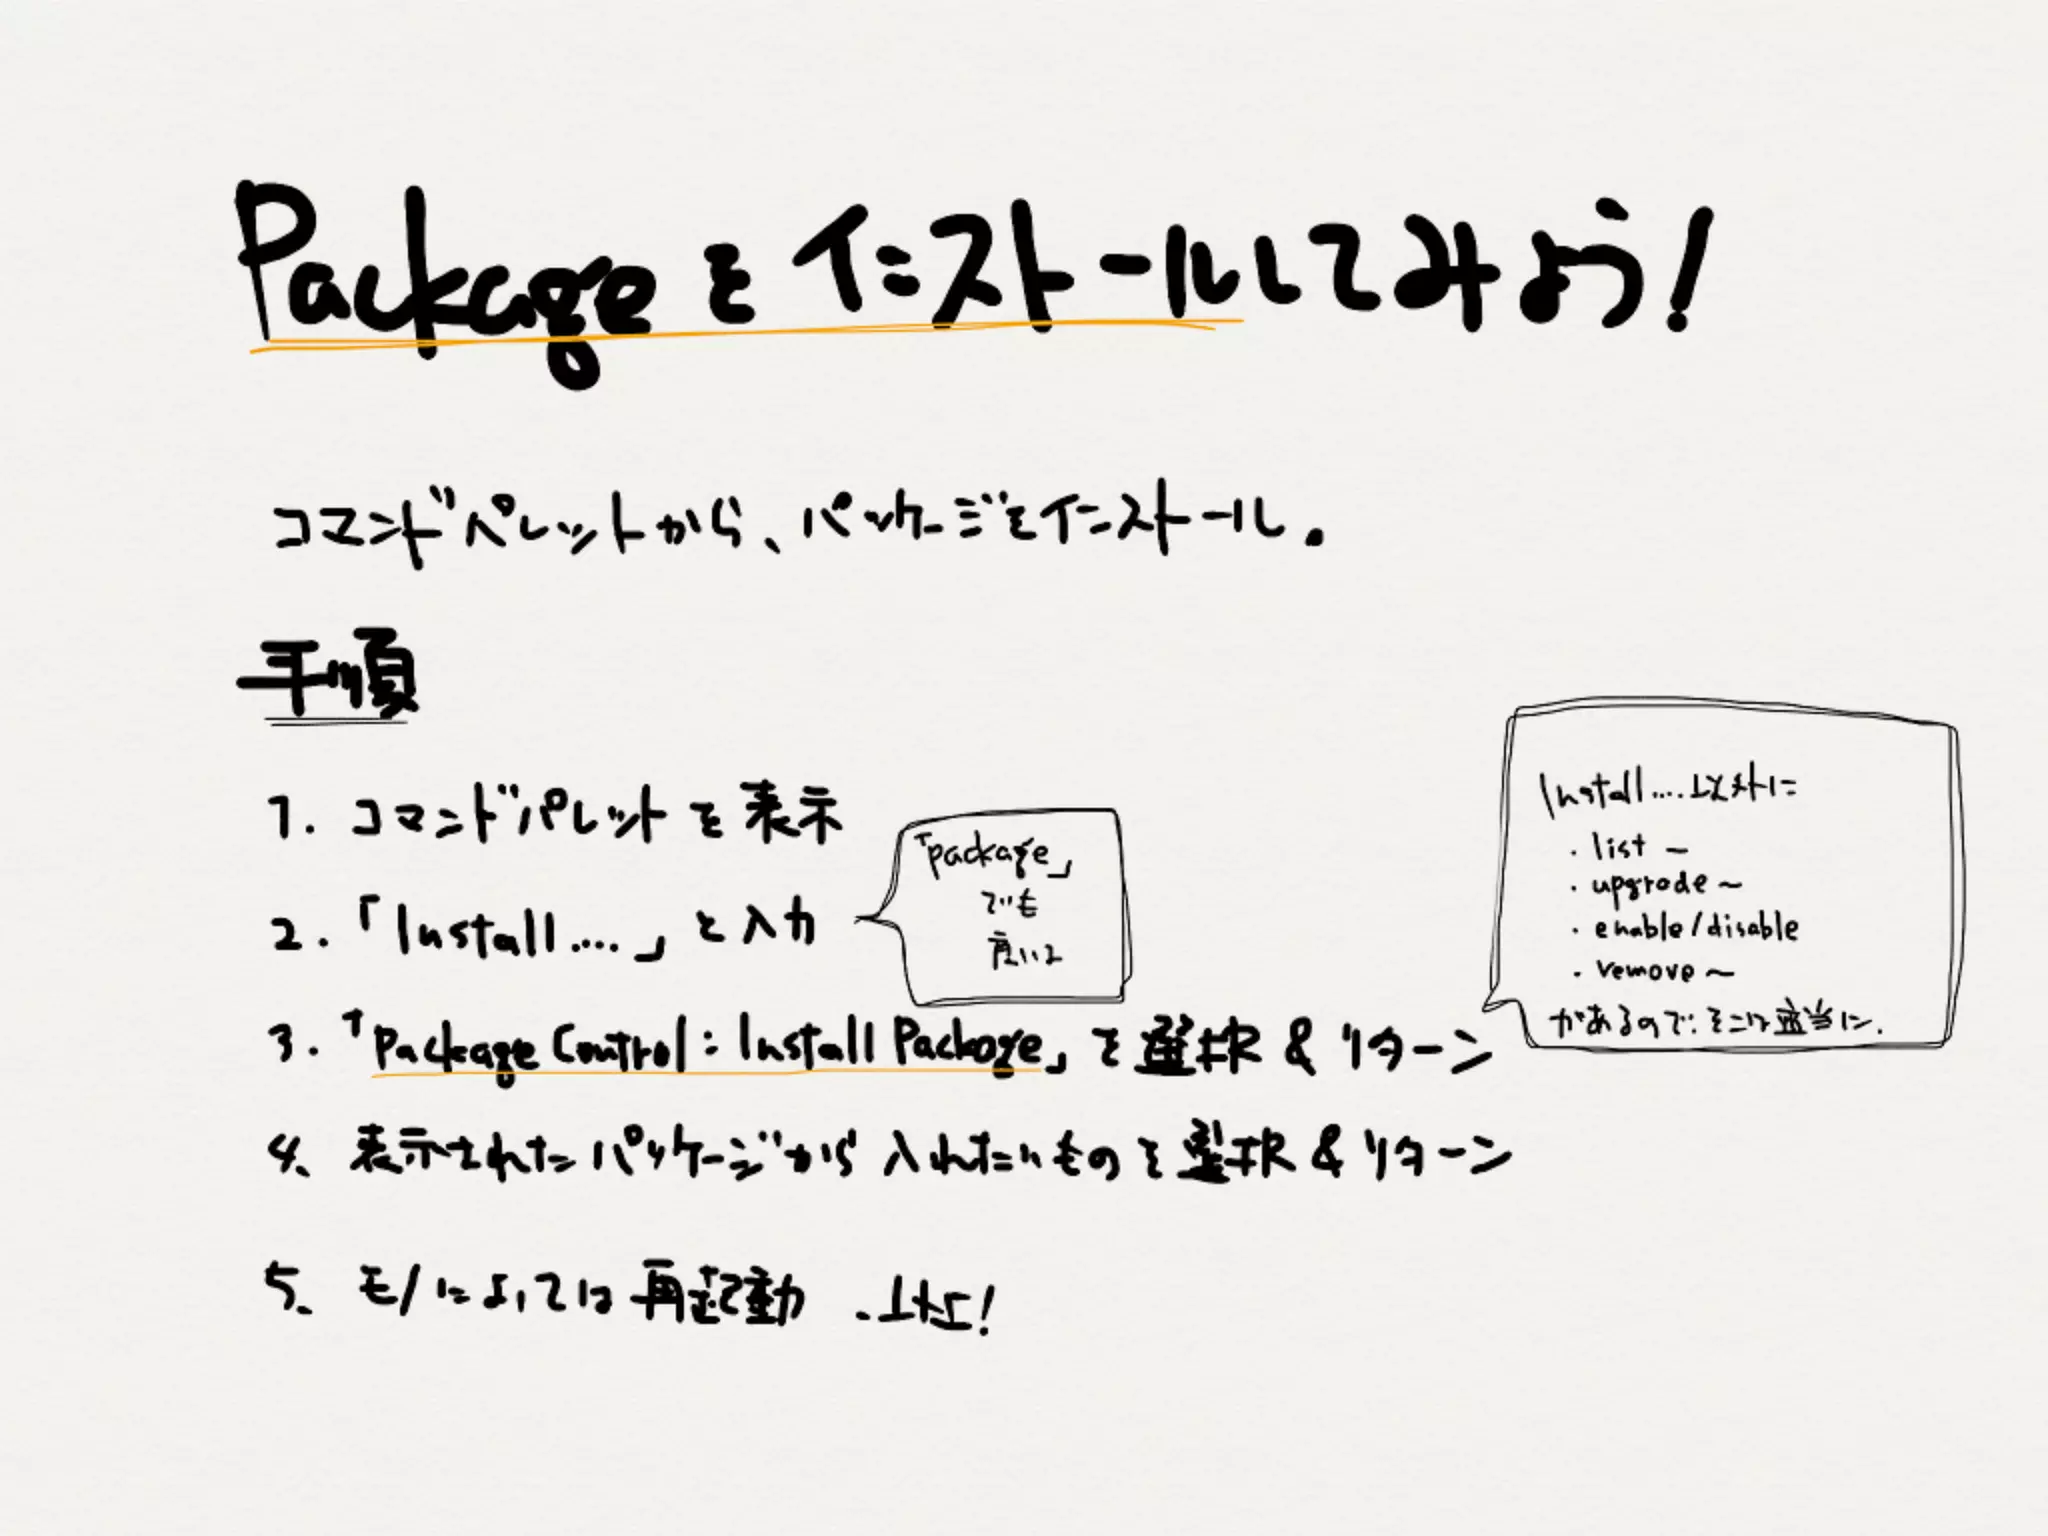 Packageをインストールしてみよう!
コマンドパレットから、パッケージをインストール.
手順
1. コマンドパレットを表示
2.「Install....」と入力
「package」
でも
良いよ
3.「Package Control: Install Package」を選択 & リターン
Install....以外に
・list ~
・upgrade ~
・enable/disable
・remove ~
があるので、そこは適当に.
4、表示されたパッケージから入れたいものを選択 & リターン
5、モノによっては再起動 .以上!